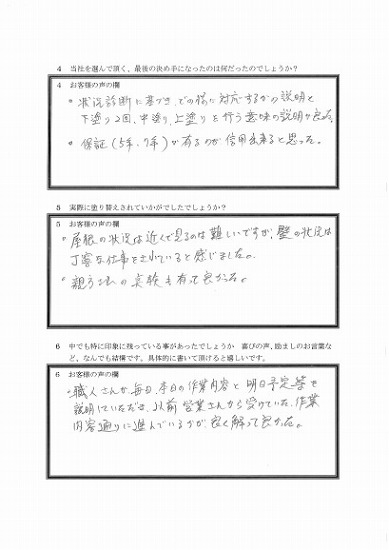 4 当社を選んで頂く、最後の決め手になったのは何だったのでしょうか?
4 お客様の声の欄
・状況診断に基づき、どの様に対応するかの説明と
下塗り2回、中塗り、上塗りを行う意味の説明が良かった。
・保証(5年、7年)が有るのが信用出来ると思った。
5 実際に塗り替えされていかがでしたでしょうか?
5 お客様の声の欄
・屋根の状況は近くで見るのは難しいですが、壁の状況は
丁寧な仕事をされていると感じました。
・親方さんの笑顔も有って良かった。
6 中でも特に印象に残っている事があったでしょうか 喜びの声、励ましのお言葉な
ど、なんでも結構です。具体的に書いて頂けると嬉しいです。
6 お客様の声の欄
・職人さんが毎日、本日の作業内容と明日予定等を
説明していただき、以前営業さんから受けていた、作業
内容通りに進んでいるかが、良く解って良かった。